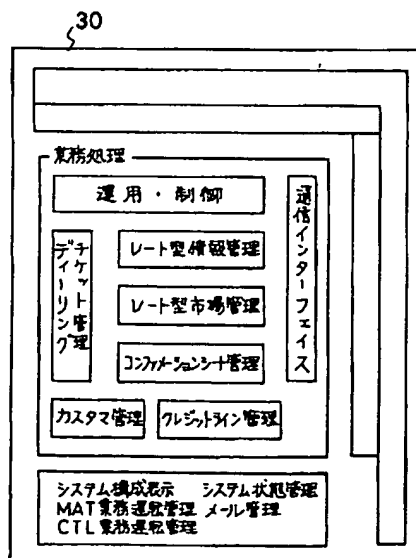 30
業務処理
運用・制御
ディーリング
チケット管理
レート型情報管理
レート型市場管理
コンファメーションシート管理
通信インターフェイス
カスタマ管理 クレジットライン管理
システム構成表示 システム状態管理
MAT業務運転管理 メール管理
CTL業務運転管理